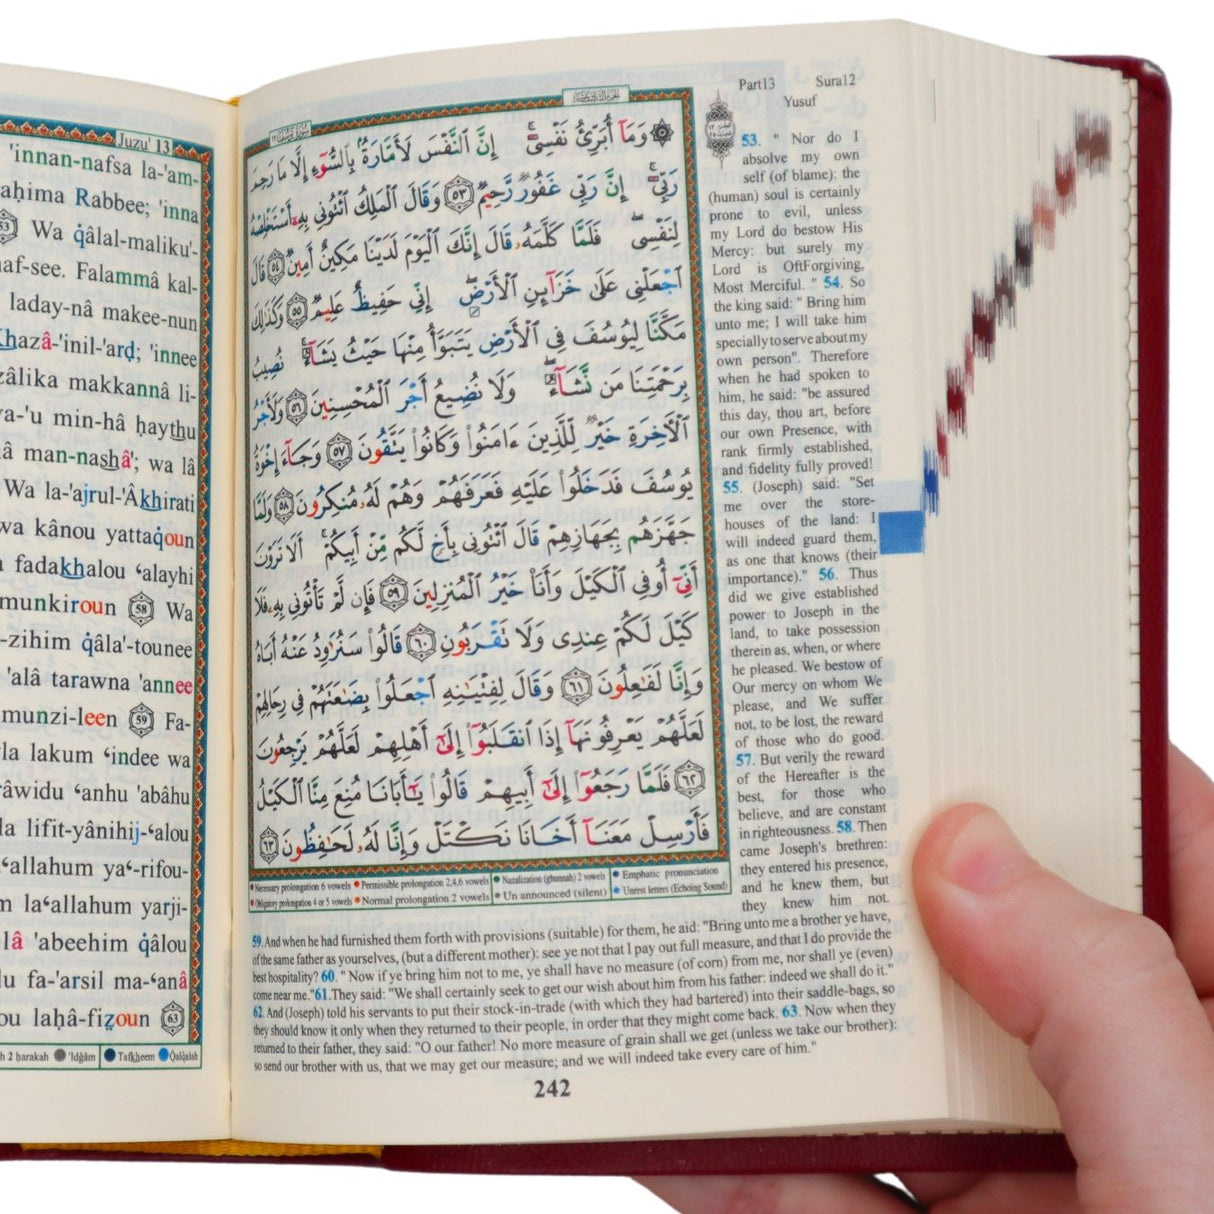 Juzu' 13
'innan-nafsa la-'am-
aḥima Rabbee; 'inna
53 Wa q̇âlal-maliku'-
af-see. Falammâ kal-
laday-nâ makee-nun
Khazâ-'inil-'arḍ; 'innee
zâlika makkannâ li-
ya-'u min-hâ ḥaythu
â man-nashâ'; wa lâ
Wa la-'ajrul-'Âkhirati
wa kânou yattaq̇oun
fadakhalou ‘alayhi
munkiroun 58 Wa
-zihim q̇âla'-tounee
'alâ tarawna 'annee
munzi-leen 59 Fa-
la lakum ‘indee wa
râwidu ‘anhu 'abâhu
la lifit-yânihij-‘alou
‘allahum ya‘-rifou-
m la‘allahum yarji-
lâ 'abeehim q̇âlou
u fa-'arsil ma-‘anâ
ou laḥâ-fiẓoun 63
h 2 harakah 'Idğâm Tafkheem Qalqalah
Part13 Sura12
Yusuf
وَمَآ أُبَرِّئُ نَفْسِىٓ إِنَّ ٱلنَّفْسَ لَأَمَّارَةٌۢ بِٱلسُّوٓءِ إِلَّا مَا رَحِمَ
رَبِّىٓ إِنَّ رَبِّى غَفُورٌ رَّحِيمٌ ٥٣ وَقَالَ ٱلْمَلِكُ ٱئْتُونِى بِهِۦٓ أَسْتَخْلِصْهُ
لِنَفْسِى فَلَمَّا كَلَّمَهُۥ قَالَ إِنَّكَ ٱلْيَوْمَ لَدَيْنَا مَكِينٌ أَمِينٌ ٥٤ قَالَ
ٱجْعَلْنِى عَلَىٰ خَزَآئِنِ ٱلْأَرْضِ إِنِّى حَفِيظٌ عَلِيمٌ ٥٥ وَكَذَٰلِكَ
مَكَّنَّا لِيُوسُفَ فِى ٱلْأَرْضِ يَتَبَوَّأُ مِنْهَا حَيْثُ يَشَآءُ نُصِيبُ
بِرَحْمَتِنَا مَن نَّشَآءُ وَلَا نُضِيعُ أَجْرَ ٱلْمُحْسِنِينَ ٥٦ وَلَأَجْرُ
ٱلْآخِرَةِ خَيْرٌ لِّلَّذِينَ ءَامَنُوا۟ وَكَانُوا۟ يَتَّقُونَ ٥٧ وَجَآءَ إِخْوَةُ
يُوسُفَ فَدَخَلُوا۟ عَلَيْهِ فَعَرَفَهُمْ وَهُمْ لَهُۥ مُنكِرُونَ ٥٨ وَلَمَّا
جَهَّزَهُم بِجَهَازِهِمْ قَالَ ٱئْتُونِى بِأَخٍ لَّكُم مِّنْ أَبِيكُمْ أَلَا تَرَوْنَ
أَنِّىٓ أُوفِى ٱلْكَيْلَ وَأَنَا۠ خَيْرُ ٱلْمُنزِلِينَ ٥٩ فَإِن لَّمْ تَأْتُونِى بِهِۦ فَلَا
كَيْلَ لَكُمْ عِندِى وَلَا تَقْرَبُونِ ٦٠ قَالُوا۟ سَنُرَٰوِدُ عَنْهُ أَبَاهُ
وَإِنَّا لَفَٰعِلُونَ ٦١ وَقَالَ لِفِتْيَٰنِهِ ٱجْعَلُوا۟ بِضَٰعَتَهُمْ فِى رِحَالِهِمْ
لَعَلَّهُمْ يَعْرِفُونَهَآ إِذَا ٱنقَلَبُوٓا۟ إِلَىٰٓ أَهْلِهِمْ لَعَلَّهُمْ يَرْجِعُونَ
٦٢ فَلَمَّا رَجَعُوٓا۟ إِلَىٰٓ أَبِيهِمْ قَالُوا۟ يَٰٓأَبَانَا مُنِعَ مِنَّا ٱلْكَيْلُ
فَأَرْسِلْ مَعَنَآ أَخَانَا نَكْتَلْ وَإِنَّا لَهُۥ لَحَٰفِظُونَ ٦٣
Necessary prolongation 6 vowels Permissible prolongation 2,4,6 vowels Nazalization (ghunnah) 2 vowels Emphatic pronunciation
Obligatory prolongation 4 or 5 vowels Normal prolongation 2 vowels Un announced (silent) Unrest letters (Echoing Sound)
53. " Nor do I
absolve my own
self (of blame): the
(human) soul is certainly
prone to evil, unless
my Lord do bestow His
Mercy: but surely my
Lord is OftForgiving,
Most Merciful. " 54. So
the king said: " Bring him
unto me; I will take him
specially to serve about my
own person". Therefore
when he had spoken to
him, he said: "be assured
this day, thou art, before
our own Presence, with
rank firmly established,
and fidelity fully proved!
55. (Joseph) said: "Set
me over the store-
houses of the land: I
will indeed guard them,
as one that knows (their
importance)." 56. Thus
did we give established
power to Joseph in the
land, to take possession
therein as, when, or where
he pleased. We bestow of
Our mercy on whom We
please, and We suffer
not, to be lost, the reward
of those who do good.
57. But verily the reward
of the Hereafter is the
best, for those who
believe, and are constant
in righteousness. 58. Then
came Joseph's brethren:
they entered his presence,
and he knew them, but
they knew him not.
59. And when he had furnished them forth with provisions (suitable) for them, he aid: "Bring unto me a brother ye have,
of the same father as yourselves, (but a different mother): see ye not that I pay out full measure, and that I do provide the
best hospitality? 60. " Now if ye bring him not to me, ye shall have no measure (of corn) from me, nor shall ye (even)
come near me."61.They said: "We shall certainly seek to get our wish about him from his father: indeed we shall do it."
62. And (Joseph) told his servants to put their stock-in-trade (with which they had bartered) into their saddle-bags, so
they should know it only when they returned to their people, in order that they might come back. 63. Now when they
returned to their father, they said: "O our father! No more measure of grain shall we get (unless we take our brother):
so send our brother with us, that we may get our measure; and we will indeed take every care of him."
242